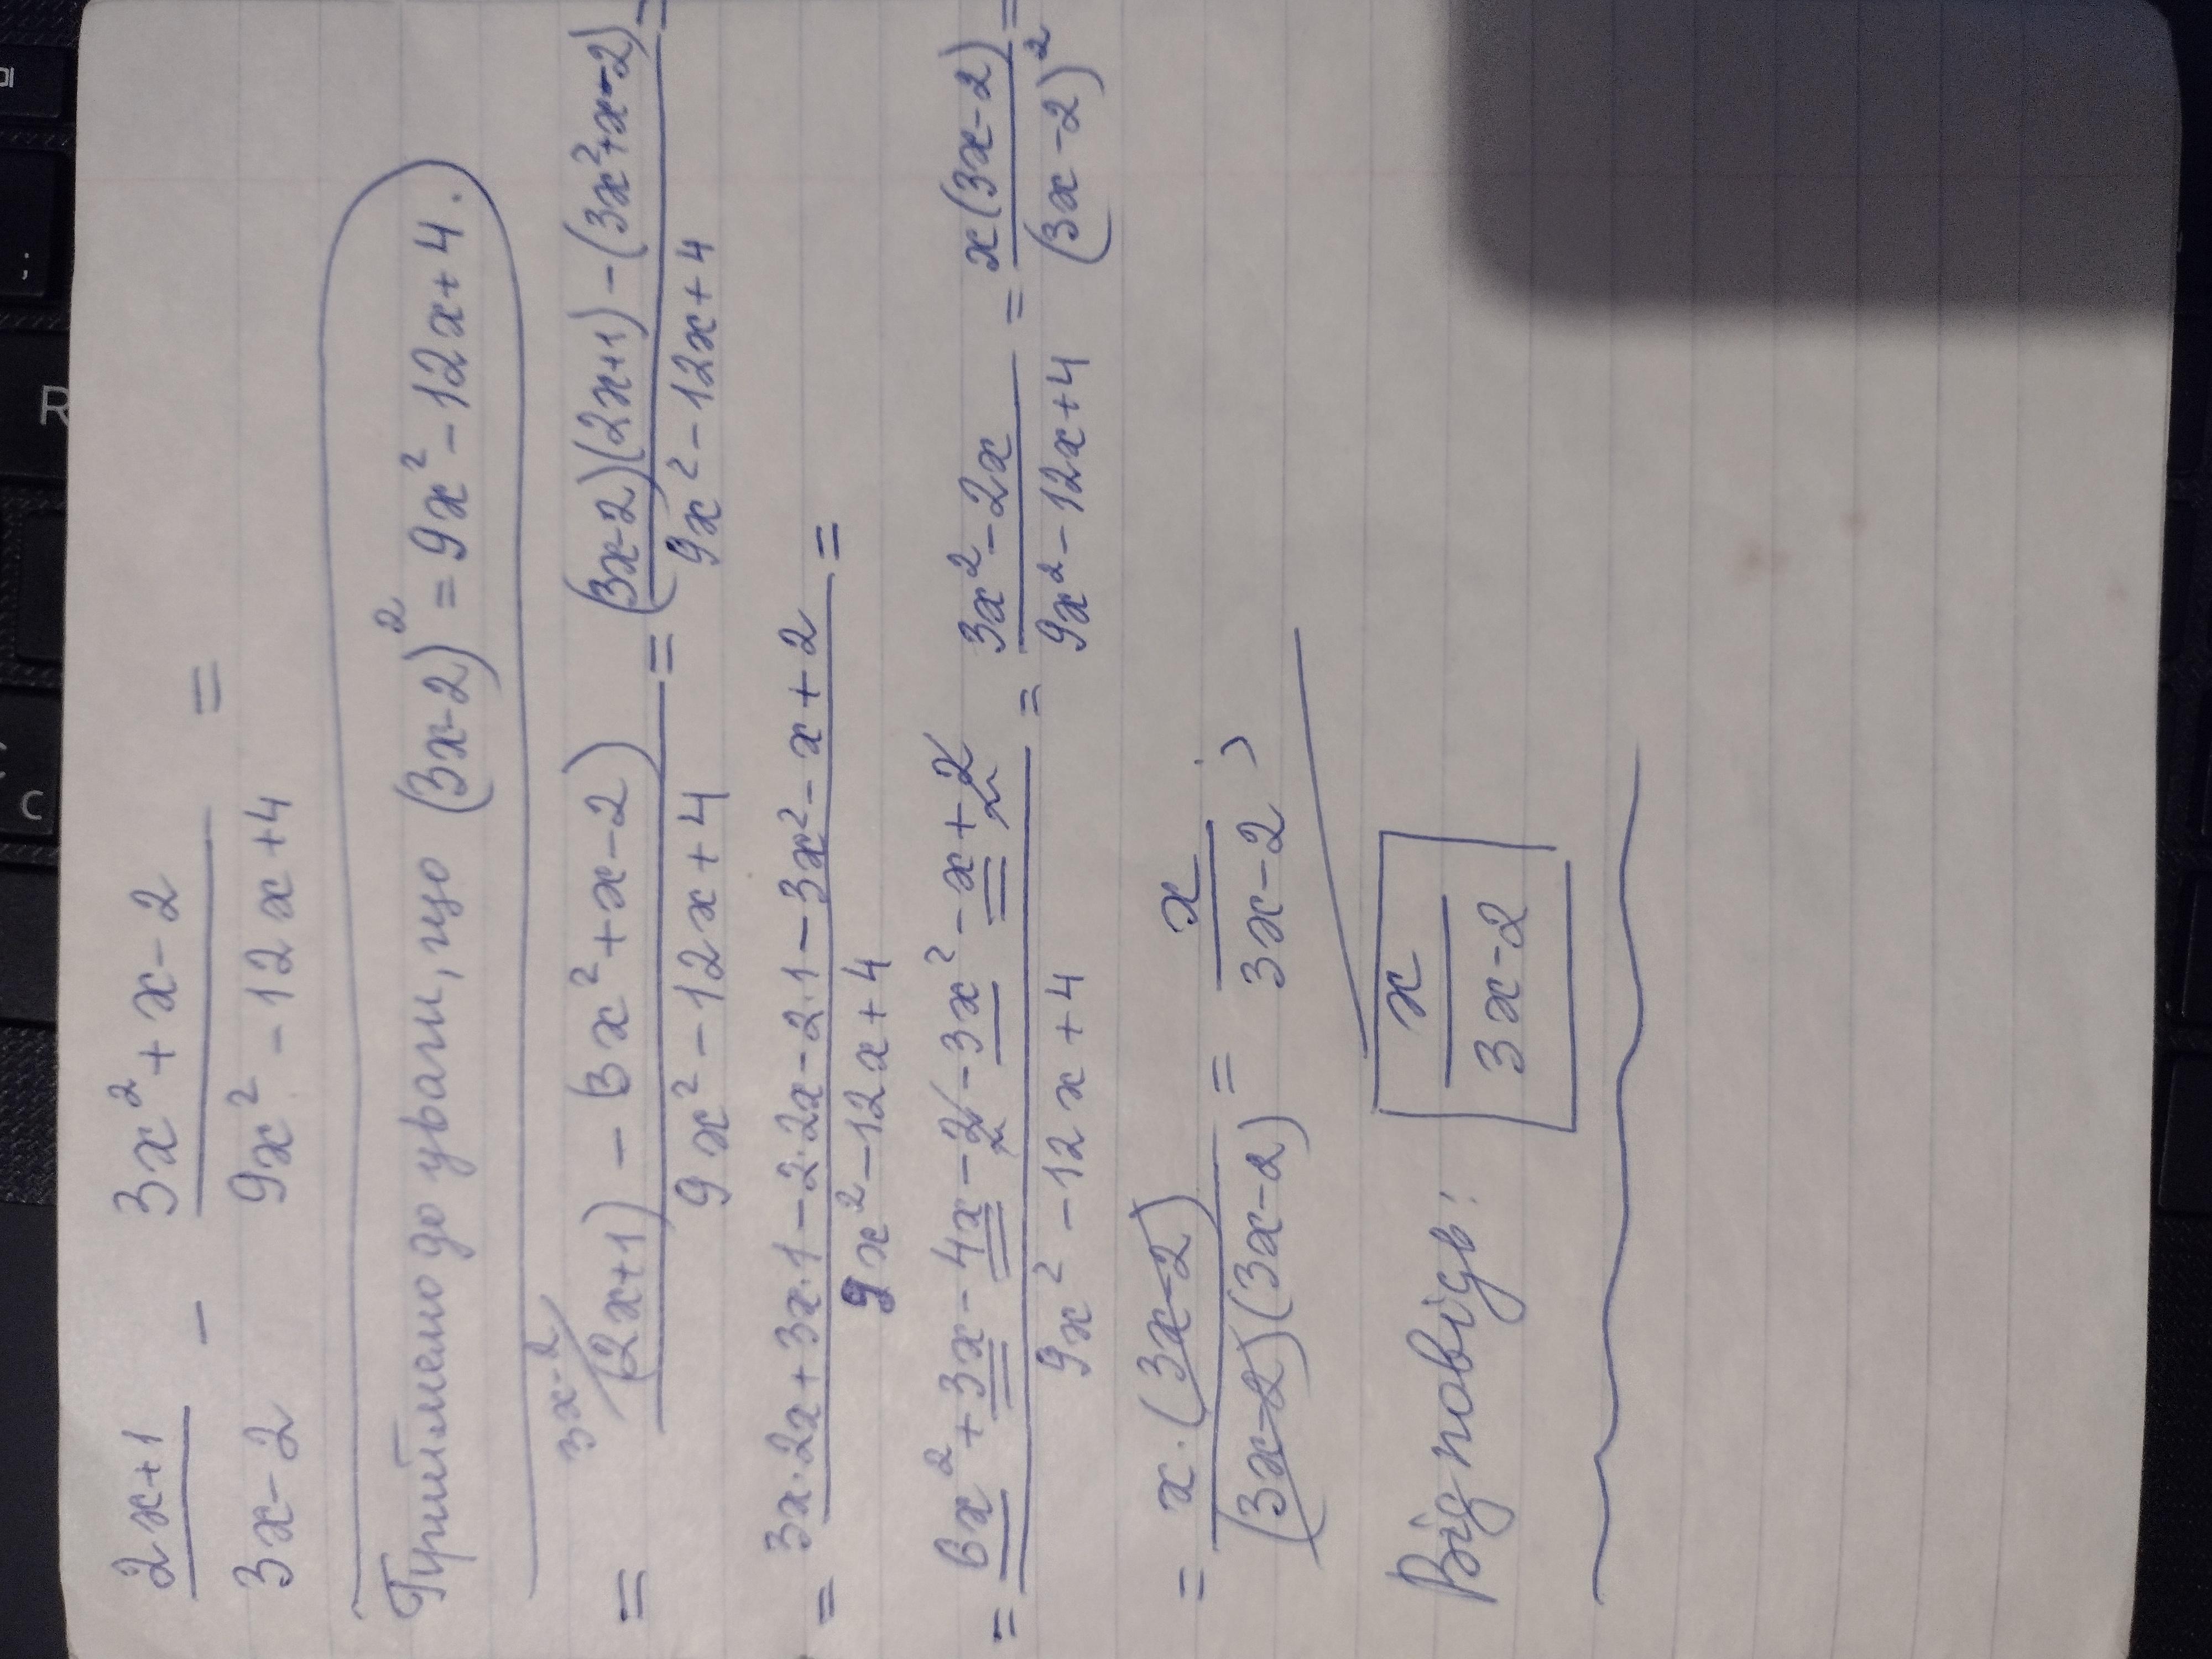 (2x+1)/(3x-2) - (3x²+x-2)/(9x²-12x+4) =
Приймемо до уваги, що (3x-2)² = 9x²-12x+4.
= (3x-2/(2x+1) - (3x²+x-2))/(9x²-12x+4) = ((3x-2)(2x+1)-(3x²+x-2))/(9x²-12x+4) =
= (3x·2x+3x·1-2·2x-2·1-3x²-x+2)/(9x²-12x+4) =
= (6x²+3x-4x-2-3x²-x+2)/(9x²-12x+4) = (3x²-2x)/(9x²-12x+4) = (x(3x-2))/(3x-2)² =
= (x·(3x-2))/((3x-2)(3x-2)) = x/(3x-2);
Відповідь: x/(3x-2)